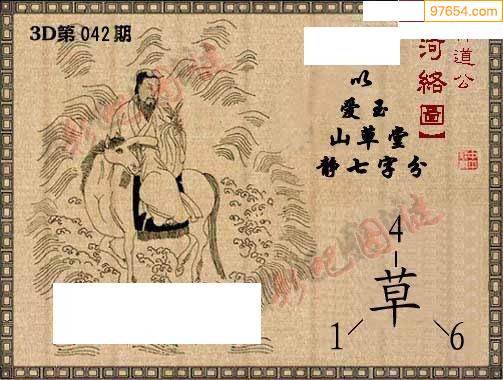 97654.com
3D第042期
道公
河络圖】
以
爱玉
山草堂
静七字分
彩吧图谜
彩吧图谜
4
草
1
6